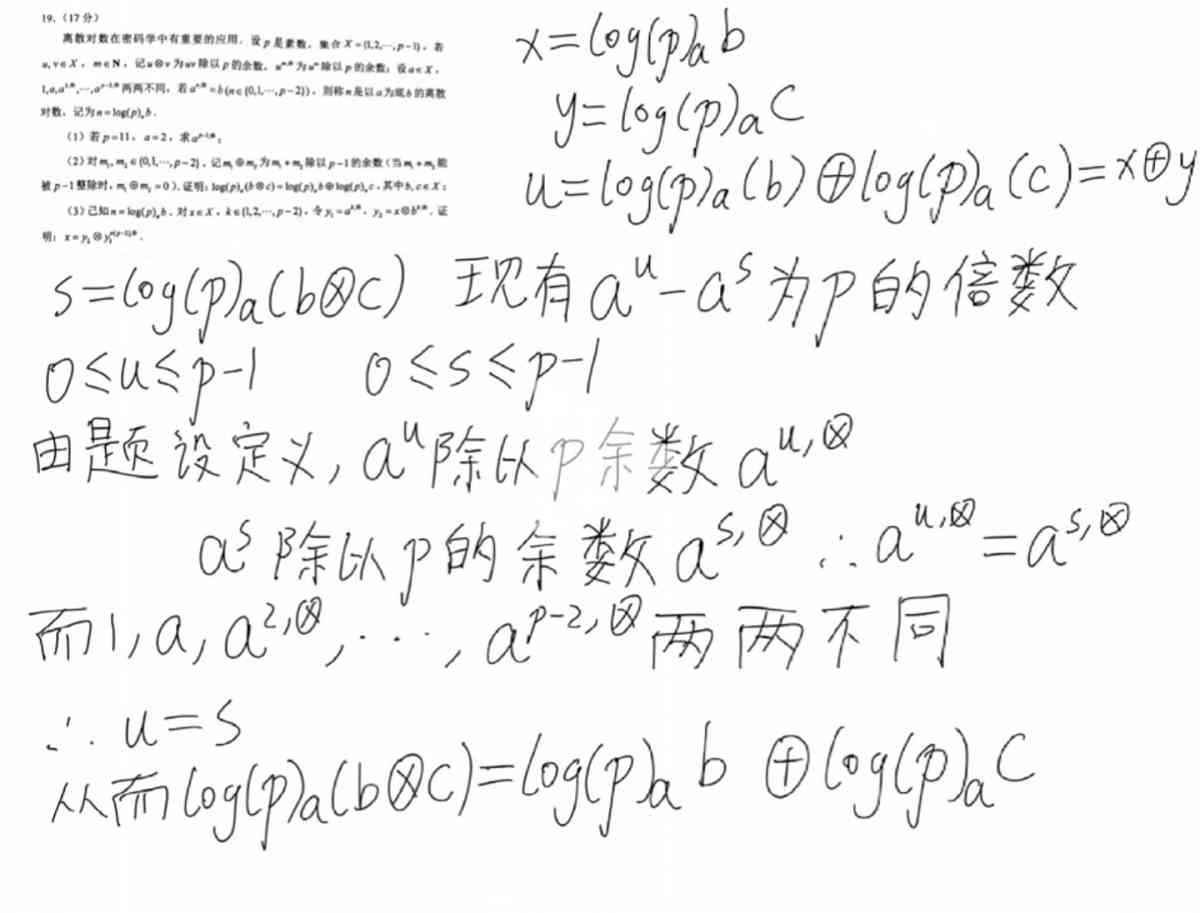 19.（17 分）
离散对数在密码学中有重要的应用．设 p 是素数，集合 X={1,2,⋯,p−1}，若
u,v∈X，m∈N，记 u⊗v 为 uv 除以 p 的余数，u^{m,⊗} 为 u^m 除以 p 的余数；设 a∈X，
1,a,a^{2,⊗},⋯,a^{p−2,⊗} 两两不同，若 a^{n,⊗}=b(n∈{0,1,⋯,p−2})，则称 n 是以 a 为底 b 的离散
对数，记为 n=log(p)_a b．
（1）若 p=11，a=2，求 a^{p−1,⊗}；
（2）对 m₁,m₂∈{0,1,⋯,p−2}，记 m₁⊕m₂ 为 m₁+m₂ 除以 p−1 的余数（当 m₁+m₂ 能
被 p−1 整除时，m₁⊕m₂=0）．证明：log(p)_a(b⊗c)=log(p)_a b⊕log(p)_a c，其中 b,c∈X；
（3）已知 n=log(p)_a b．对 x∈X，k∈{1,2,⋯,p−2}，令 y₁=a^{k,⊗}，y₂=x⊗b^{k,⊗}．证
明：x=y₂⊗y₁^{n(p−2),⊗}．
x=log(p)_a b
y=log(p)_a c
u=log(p)_a(b)⊕log(p)_a(c)=x⊕y
s=log(p)_a(b⊗c) 现有 a^u−a^s 为 p 的倍数
0≤u≤p−1 0≤s≤p−1
由题设定义, a^u 除以 p 余数 a^{u,⊗}
a^s 除以 p 的余数 a^{s,⊗} ∴a^{u,⊗}=a^{s,⊗}
而1, a, a^{2,⊗}, ⋯, a^{p−2,⊗} 两两不同
∴ u=s
从而 log(p)_a(b⊗c)=log(p)_a b ⊕ log(p)_a c